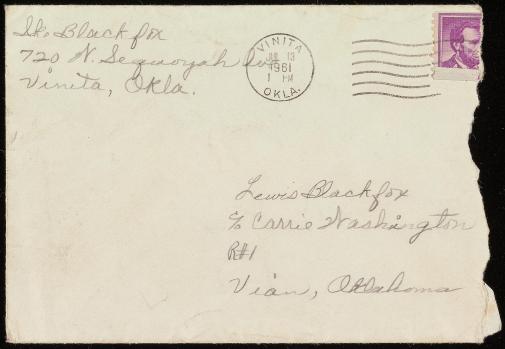 Ik. Blackfox
720 N. Sequoyah Ave
Vinita, Okla.
VINITA
13
1961
1 PM
OKLA.
Lewis Blackfox
℅ Carrie Washington
R#1
Vian, Oklahoma